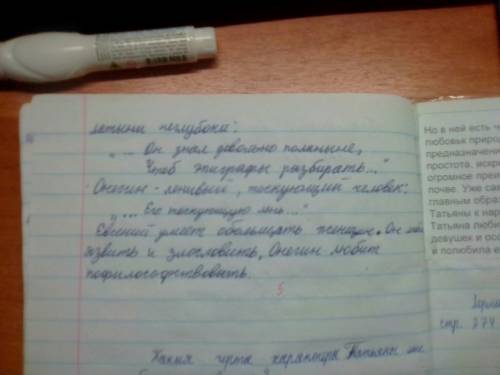 латыни неглубоки:
"... Он знал довольно полатыне,
Чтоб эпиграфы разбирать..."
Онегин - ленивый, тоскующий человек:
"... Его тоскующую лень..."
Евгений умеет обольщать женщин. Он
язвить и злословить. Онегин любит
пофилософствовать.
5
Какая черта характера Татьяны
Но в ней есть ч
любовья приро
предназначени
простота, искр
огромное преи
почве. Уже са
главным образ
Татьяны к на
Татьяна люби
девушек и осо
й полюбила е
стр. 274